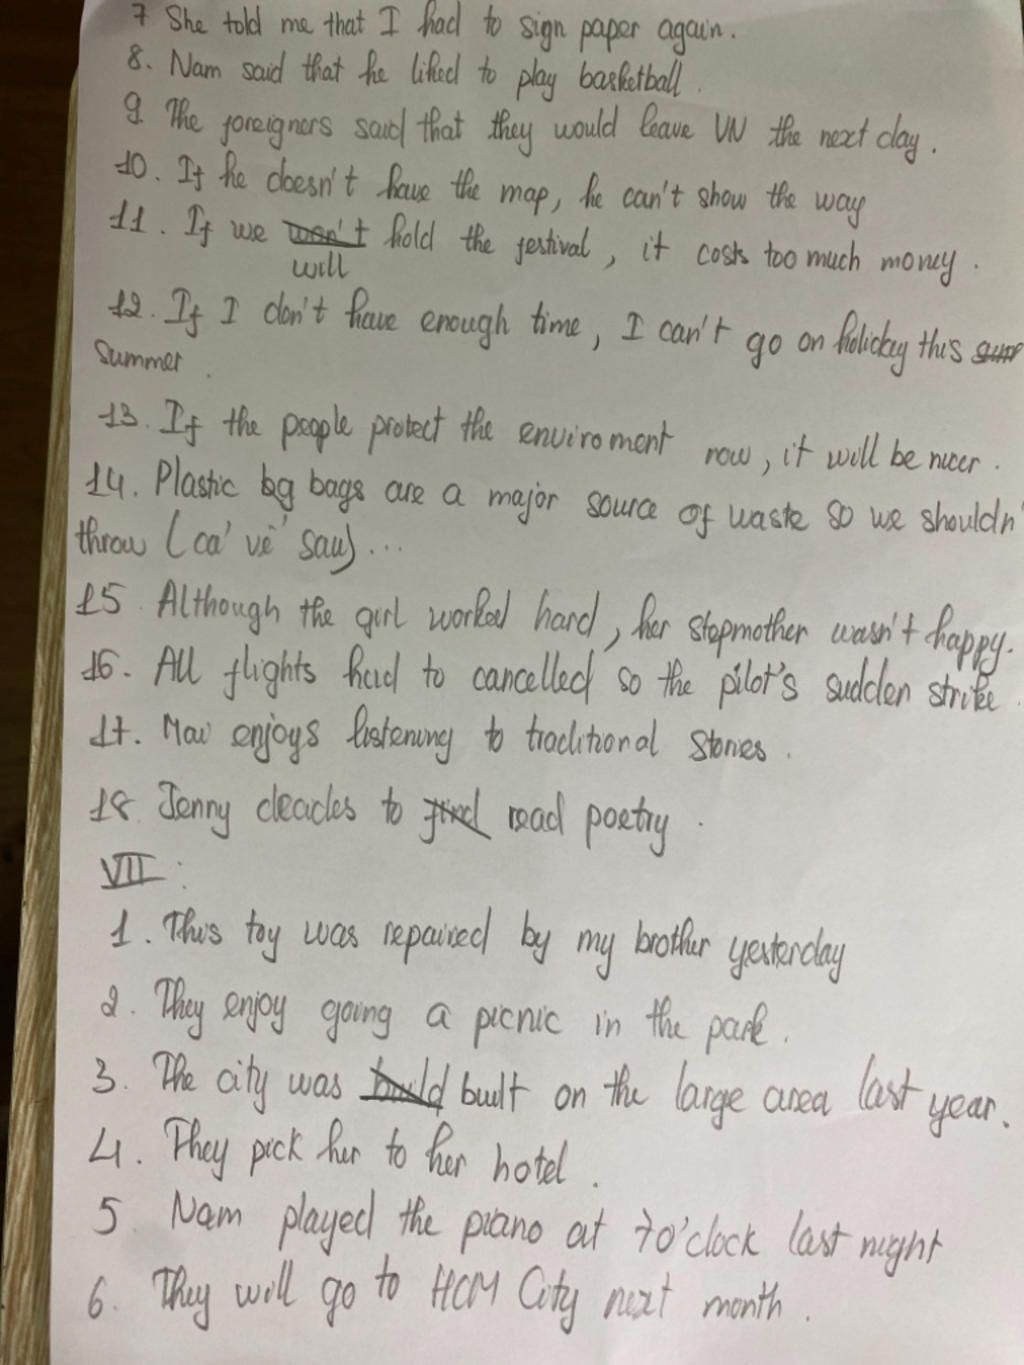 7 She told me that I had to sign paper again.
8. Nam said that he liked to play basketball.
9. The foreigners said that they would leave VN the next day.
10. If he doesn't have the map, he can't show the way
11. If we won't hold the festival, it costs too much money.
will
12. If I don't have enough time, I can't go on holiday this
summer.
13. If the people protect the enviroment now, it will be nicer.
14. Plastic bg bags are a major source of waste so we shouldn'
throw (cả vế sau)...
15. Although the girl worked hard, her stepmother wasn't happy.
16. All flights had to cancelled so the pilot's sudden strike.
17. Mai enjoys listening to traditional stories.
18. Jenny decides to find read poetry.
VII:
1. This toy was repaired by my brother yesterday
2. They enjoy going a picnic in the park.
3. The city was build built on the large area last year.
4. They pick her to her hotel.
5. Nam played the piano at 7o'clock last night
6. They will go to HCM City next month.